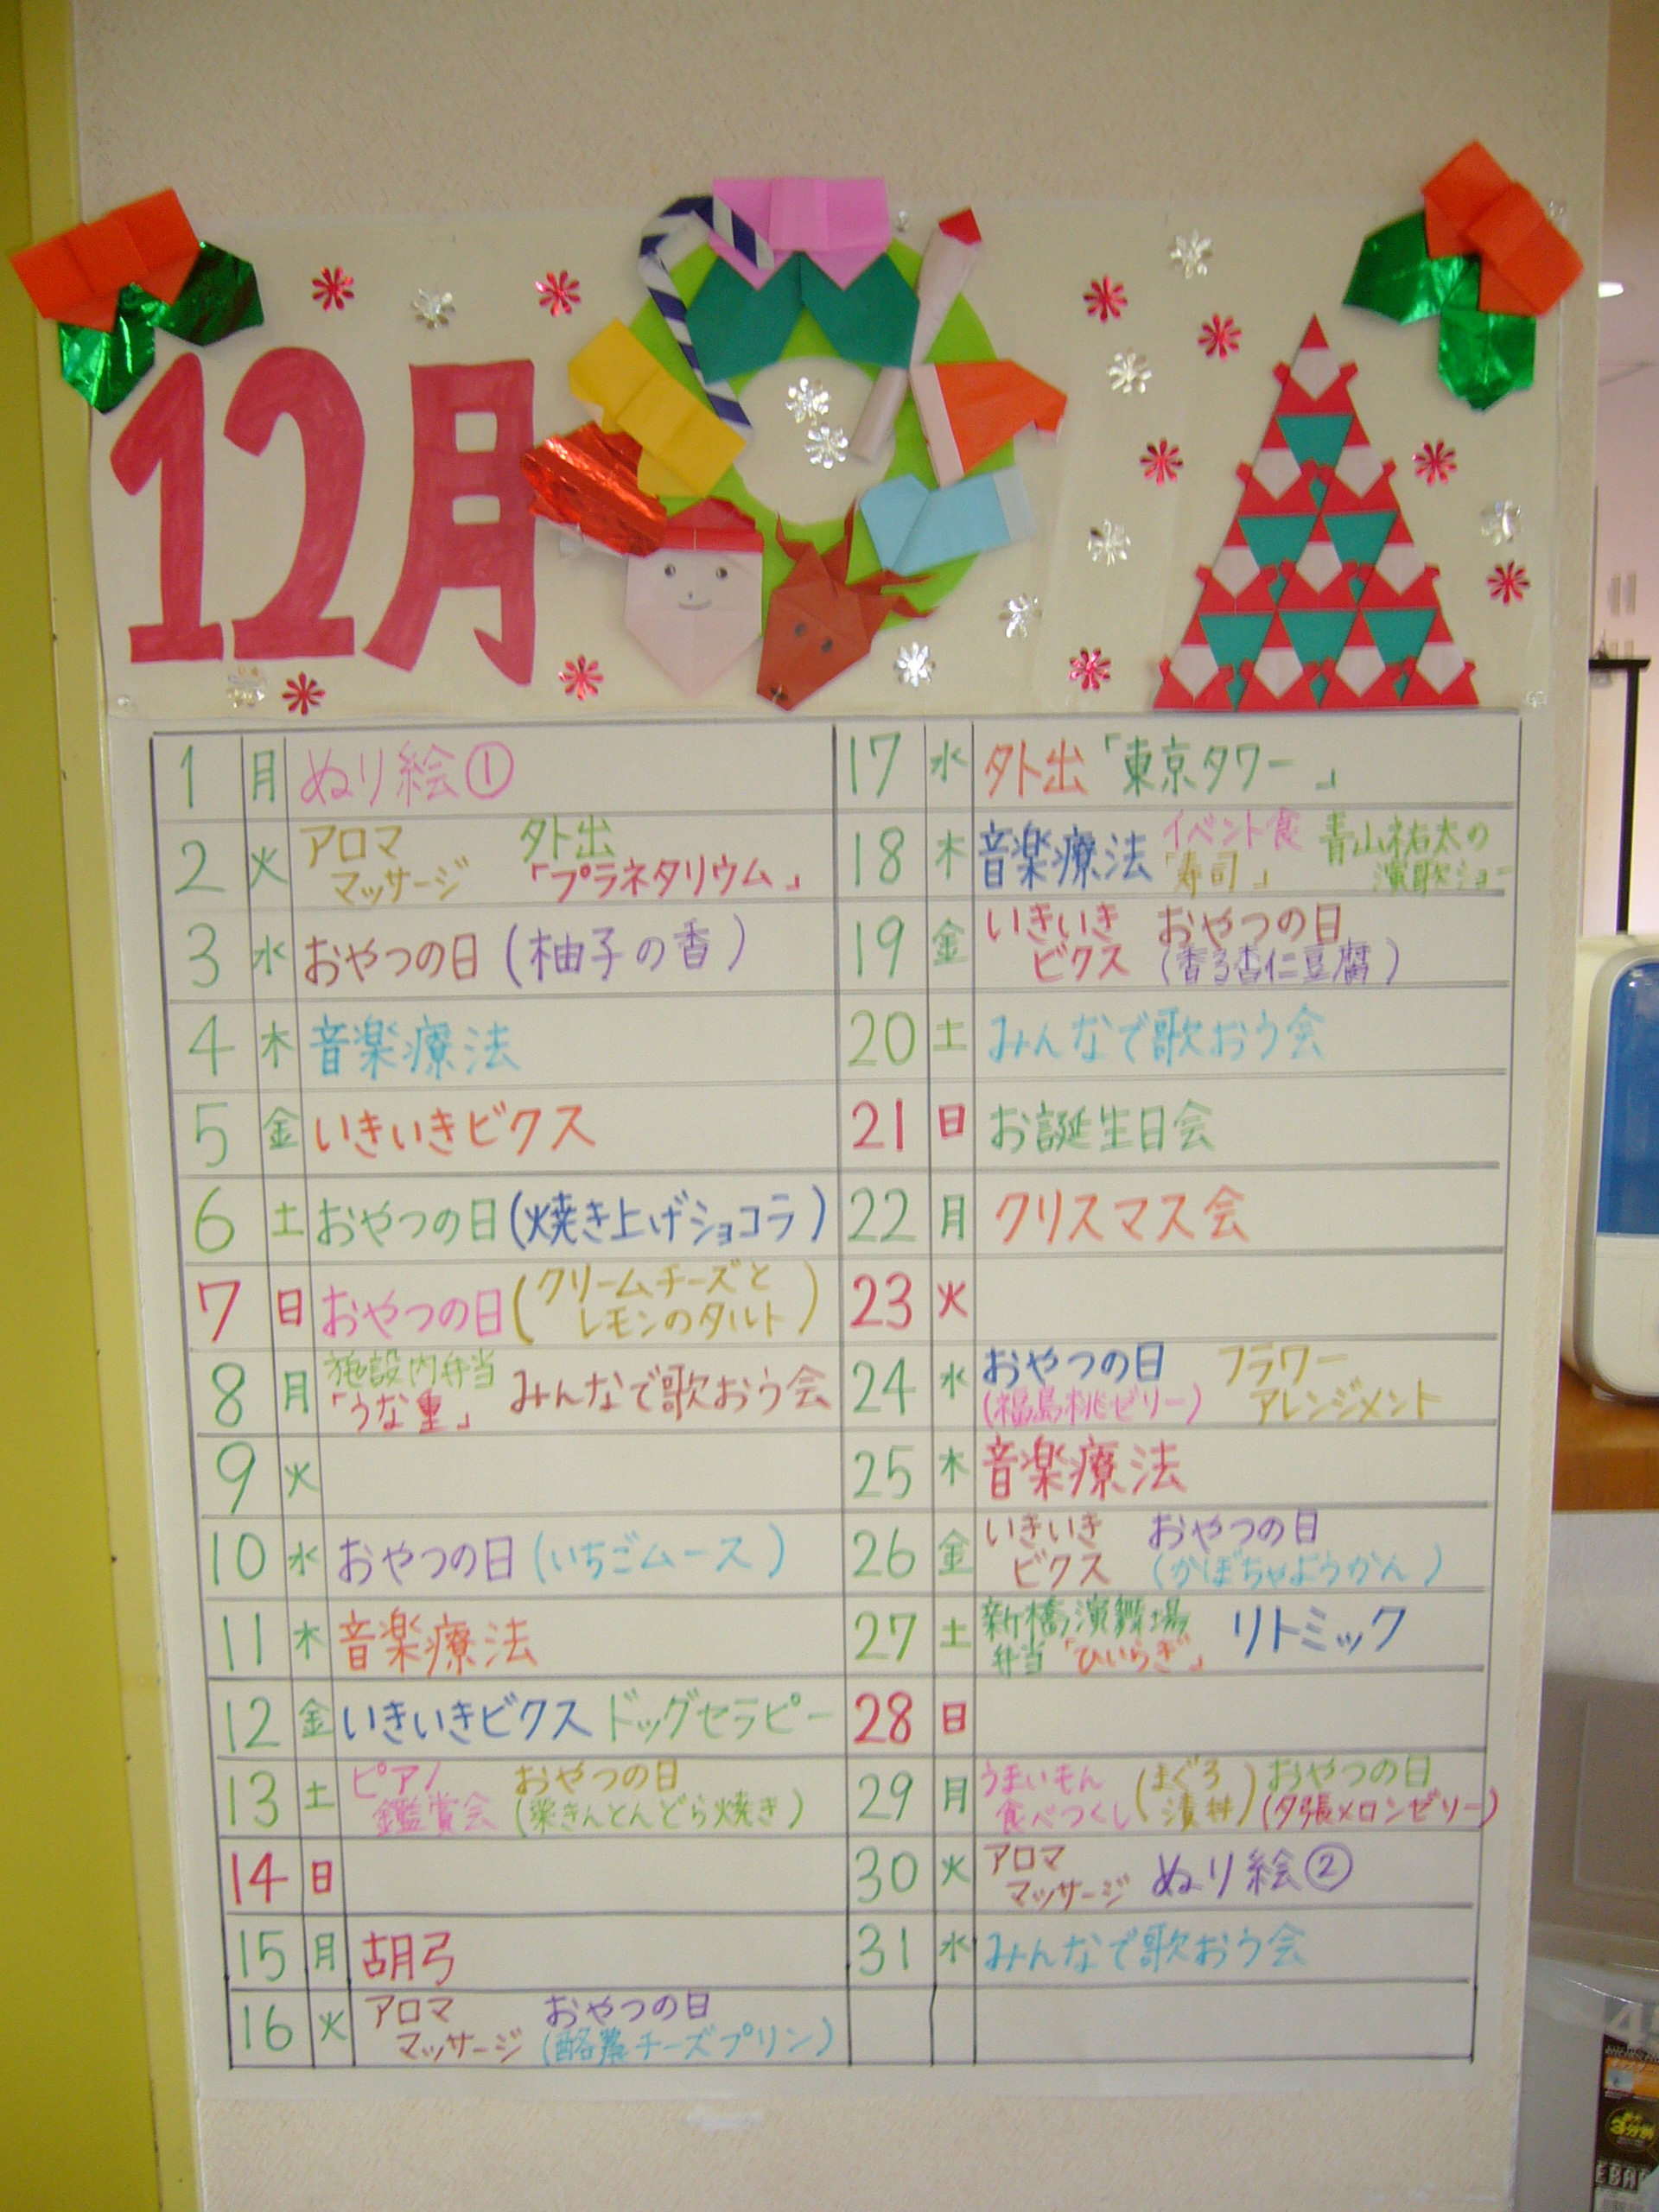 12月
1 月 ぬり絵①
2 火 アロマ 外出
マッサージ 「プラネタリウム」
3 水 おやつの日 (柚子の香)
4 木 音楽療法
5 金 いきいきビクス
6 土 おやつの日 (焼き上げショコラ)
7 日 おやつの日 (クリームチーズと
レモンのタルト)
8 月 施設内弁当 みんなで歌おう会
「うな重」
9 火
10 水 おやつの日 (いちごムース)
11 木 音楽療法
12 金 いきいきビクス ドッグセラピー
13 土 ピアノ おやつの日
鑑賞会 (栗きんとんどら焼き)
14 日
15 月 胡弓
16 火 アロマ おやつの日
マッサージ (酪農チーズプリン)
17 水 外出「東京タワー」
18 木 音楽療法 イベント食 青山祐太の
「寿司」 演歌ショー
19 金 いきいき おやつの日
ビクス (香る杏仁豆腐)
20 土 みんなで歌おう会
21 日 お誕生日会
22 月 クリスマス会
23 火
24 水 おやつの日 フラワー
(福島桃ゼリー) アレンジメント
25 木 音楽療法
26 金 いきいき おやつの日
ビクス (かぼちゃようかん)
27 土 新橋演舞場 リトミック
弁当「ひいらぎ」
28 日
29 月 うまいもん (まぐろ おやつの日
食べつくし 漬丼) (夕張メロンゼリー)
30 火 アロマ ぬり絵②
マッサージ
31 水 みんなで歌おう会